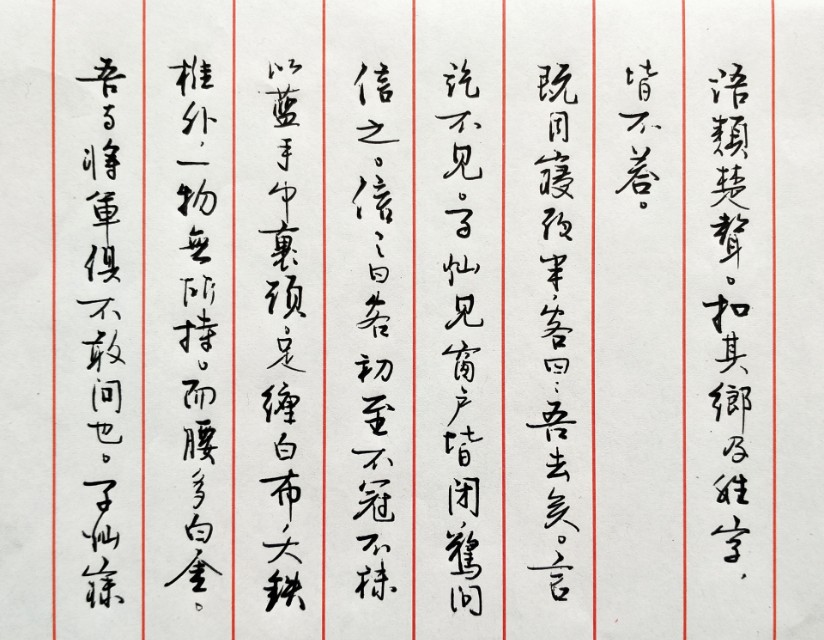 語類楚聲。扣其鄉及姓字，
皆不荅。
既同寢夜半，客曰：吾去矣。言
訖不見。子灿見窗户皆闭，驚问
信之。信之曰客初至不冠不袜
以蓝手巾裹頭，足缠白布，大鉄
椎外，一物無所持。而腰多白金。
吾与将軍俱不敢问也。子灿寐